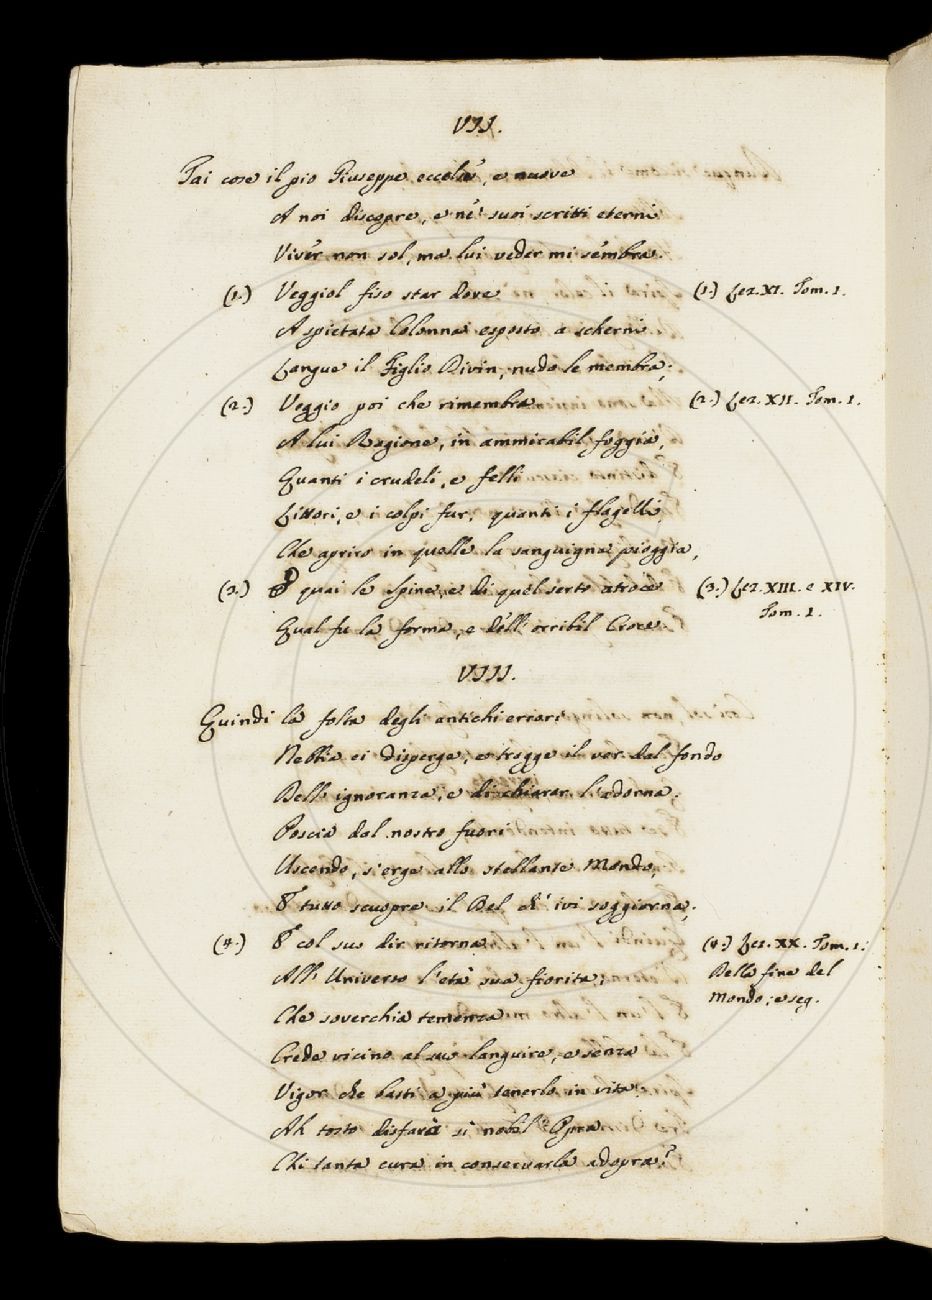 VII.
Tai cose il pio Giuseppe eccelse, e nuove
A noi discopre, e ne' suoi scritti eterni
Viver non sol, ma lui veder mi sembra.
(1.) Veggiol fiso star dove
(1.) Lez. XI. Tom. 1.
A spietata Colonna esposto a scherni
Langue il Figlio Divin, nudo le membra;
(2.) Veggio poi che rimembra
(2.) Lez. XII. Tom. 1.
A lui Ragione, in ammirabil foggia,
Quanti i crudeli, e felli
Littori, e i colpi fur; quanti i flagelli,
Che apriro in quelle la sanguigna pioggia,
(3.) E quai le spine, e di quel serto atroce
(3.) Lez. XIII. e XIV.
Tom. 1.
Qual fu la forma, e dell' orribil Croce.
VIII.
Quindi la folta degli antichi errori
Nebbia ei disperge, e tragge il ver dal fondo
Dell' ignoranza, e di chiaror l'adorna.
Poscia dal nostro fuori
Uscendo, s'erge allo stellante Mondo,
E tutto scuopre il Bel ch' ivi soggiorna;
(4.) E col suo dir ritorna
(4.) Lez. XX. Tom. 1.
Della fine del
Mondo; e seg.
All' Universo l'età sua fiorita;
Che soverchia temenza
Crede vicino al suo languire, e senza
Vigor che basti a più tenerlo in vita.
Ah tosto disfarà sì nobil Opra
Chi tanta cura in conservarla adopra?